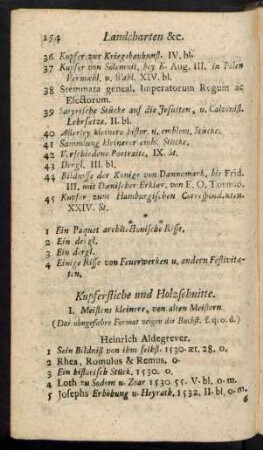 154 Landcharten &c.
36 Kupfer zur Kriegsbaukunst. IV. bl.
37 Kupfer von Solennit. bey K. Aug. III. in Polen
Vermæhl. u. Wahl. XIV. bl.
38 Stemmata geneal. Imperatorum Regum ac
Electorum.
39 Satyrische Stücke auf die Jesuiten, u. Calvinist.
Lehrsätze. II. bl.
40 Allerley kleinere histor. u. emblem. Stücke.
41 Sammlung kleinerer embl. Stücke.
42 Verschiedene Portraits, IX. St.
43 Dergl. III. bl.
44 Bildnisse der Könige von Dannemark, bis Frid.
III. mit Dänischer Erklär. von E. O. Tormao.
45 Kupfer zum Hamburgischen Correspondenten.
XXIV. St.
* * *
1 Ein Paquet architectonische Risse.
2 Ein dergl.
3 Ein dergl.
4 Einige Risse von Feuerwerken u. andern Festivitæ-
ten.
Kupferstiche und Holzschnitte.
I. Meistens kleinere, von alten Meistern.
(Das ohngefæhre Format zeigen die Buchst. f. q. o. d.)
Heinrich Aldegrever.
1 Sein Bildniß von ihm selbst. 1530. æt. 28. o.
2 Rhea, Romulus & Remus. o.
3 Ein historisch Stück. 1530. o.
4 Loth zu Sodom u. Zoar 1530. 55. V. bl. o-m.
5 Josephs Erhöhung u. Heyrath. 1532. II. bl. o-m.
6